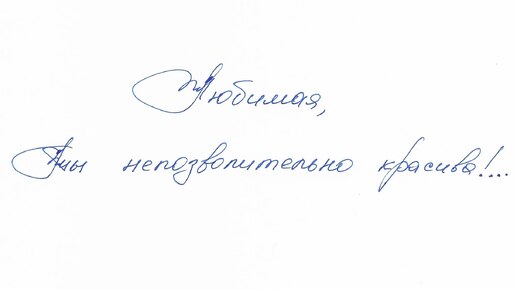 Любимая,
Ты непозволительно красива!...